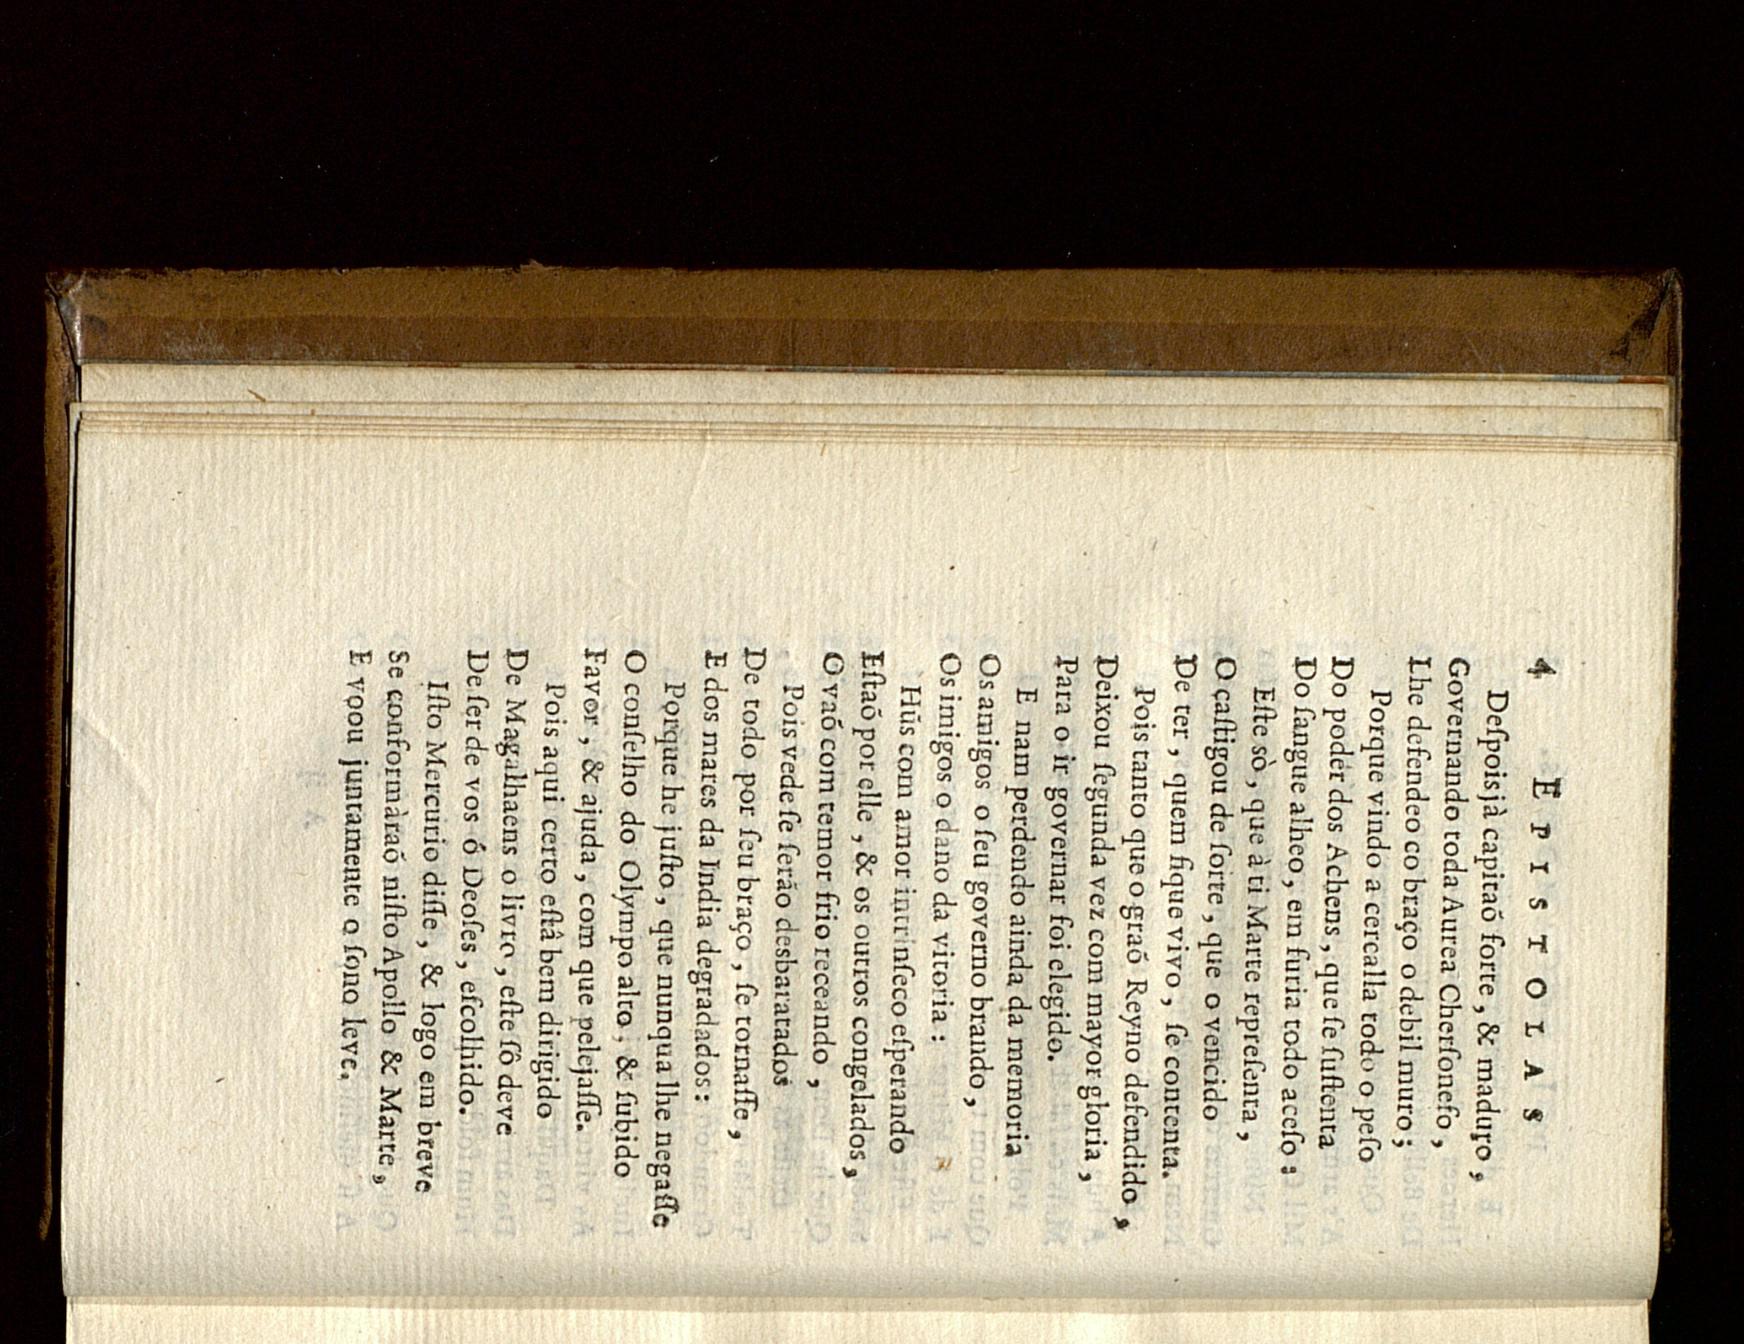 4 EPISTOLAS
Deſpois jà capitaõ forte, & maduro,
Governando toda Aurea Cherſoneſo,
Lhe defendeo co braço o debil muro;
Porque vindo a cercalla todo o peſo
Do podèr dos Achens, que ſe ſuſtenta
Do ſangue alheo, em furia todo aceſo:
Eſte sò, que à ti Marte repreſenta,
O caſtigou de ſorte, que o vencido
De ter, quem fique vivo, ſe contenta.
Pois tanto que o graõ Reyno defendido,
Deixou ſegunda vez com mayor gloria,
Para o ir governar foi elegido.
E nam perdendo ainda da memoria
Os amigos o ſeu governo brando,
Os imigos o dano da vitoria:
Hũs com amor intrinſeco eſperando
Eſtaõ por elle, & os outros congelados,
O vaõ com temor frio receando,
Pois vede ſe ſerão desbaratados
De todo por ſeu braço, ſe tornaſſe,
E dos mares da India degradados:
Porque he juſto, que nunqua lhe negaſſe
O conſelho do Olympo alto, & ſubido
Favor, & ajuda, com que pelejaſſe.
Pois aqui certo eſtâ bem dirigido
De Magalhaens o livro, eſte ſô deve
De ſer de vos ó Deoſes, eſcolhido.
Iſto Mercurio diſſe, & logo em breve
Se conformàraõ niſto Apollo & Marte,
E voou juntamente o ſono leve.